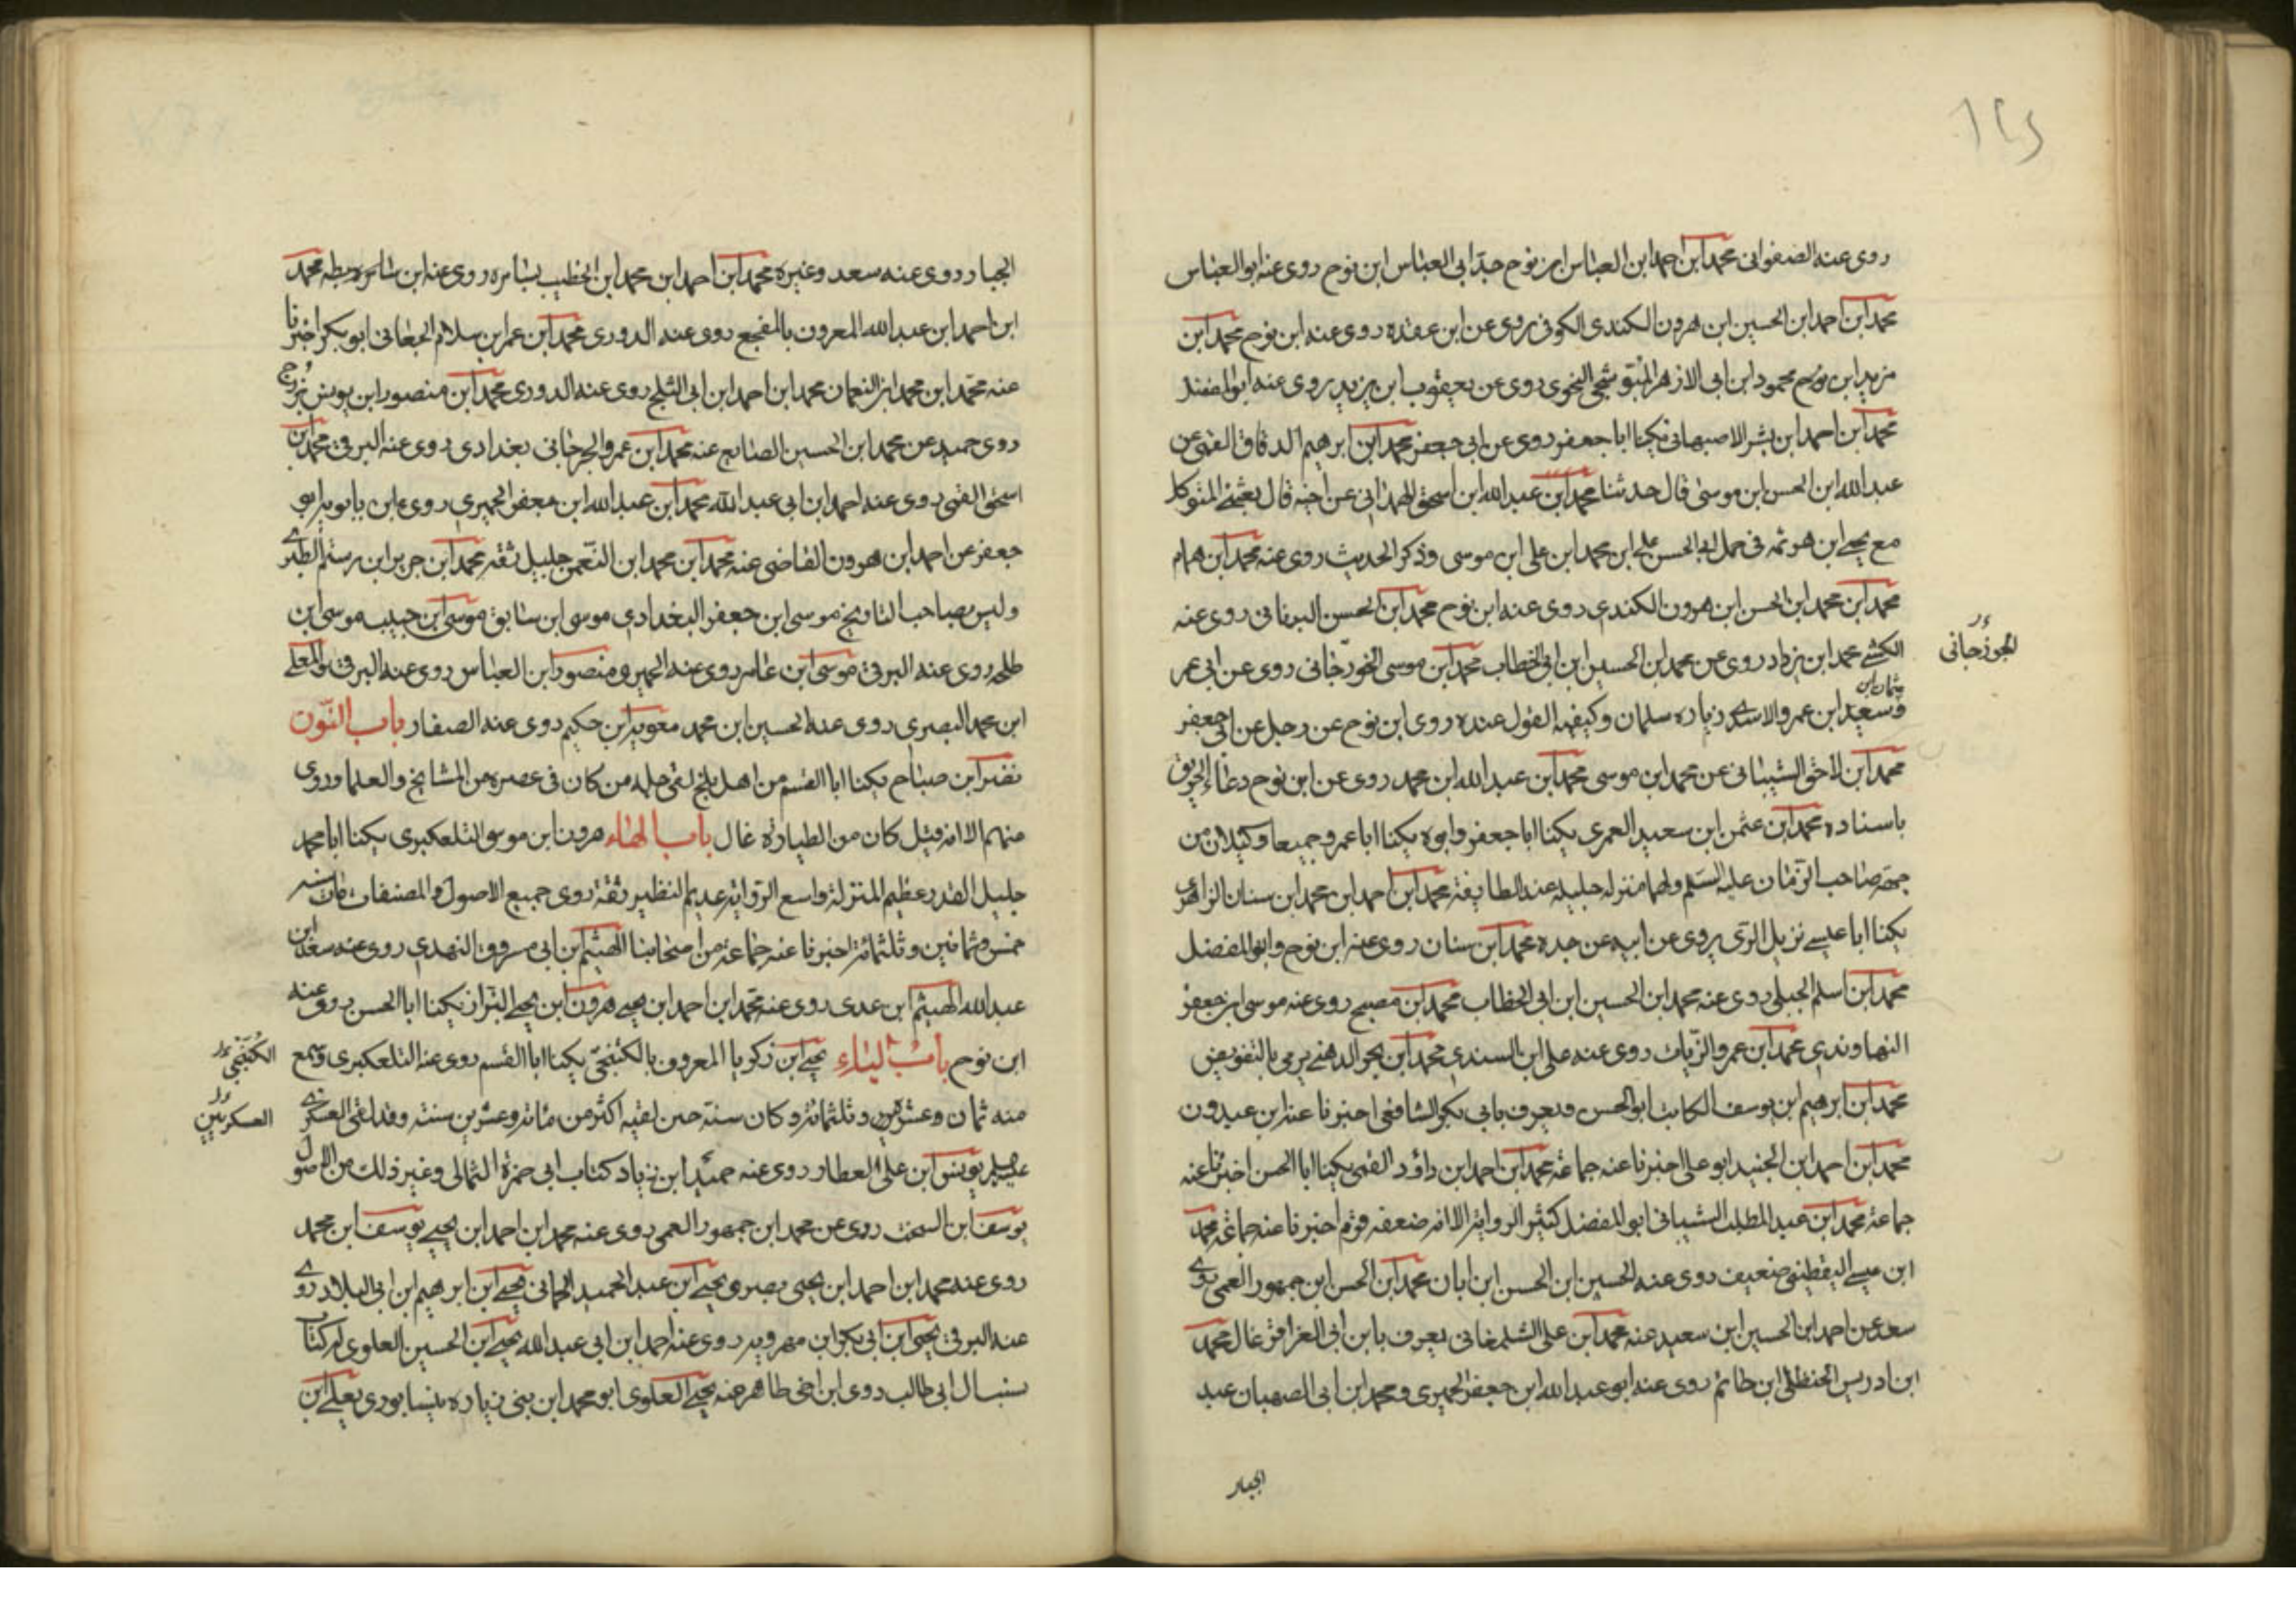 روى عنه الصفوانى محمد ابن احمد ابن العباس ابن نوح جد ابى العباس ابن نوح روى عنه ابو العباس
محمد ابن احمد ابن الحسين ابن هرون الكندى الكوفى روى عن ابن عقده روى عنه ابن نوح محمد ابن
مزيد ابن محمود ابن ابى الازهر البوشنجى النحوى روى عن يعقوب ابن يزيد روى عنه ابو المفضل
محمد ابن احمد ابن بشر الاصبهانى يكنا ابا جعفر روى عن ابى جعفر محمد ابن ابرهيم الدقاق القمى عن
عبد الله ابن الحسن ابن موسى قال حدثنا محمد ابن عبد الله ابن اسحق الهمدانى عن اخيه قال بعثنى المتوكل
مع يحيى ابن هرثمه فى حمل ابى الحسن على ابن محمد ابن على ابن موسى وذكر الحديث روى عنه محمد ابن همام
محمد ابن محمد ابن الحسن ابن هرون الكندى روى عنه ابن نوح محمد ابن الحسن البرفانى روى عنه
الكشى محمد ابن يزداد روى عن محمد ابن الحسين ابن ابى الخطاب محمد ابن موسى الخورجانى روى عن ابى عمر
الجوزجانى
وسعيد ابن عمرو الاسدى زياره سلمان وكيفيه القول عنده روى ابن نوح عن رجل عن ابى جعفر
محمد ابن لاحق الشيبانى عن محمد ابن موسى محمد ابن عبد الله ابن محمد روى عن ابن نوح دعاء الحريق
باسناده محمد ابن عثمن ابن سعيد العمرى يكنا ابا جعفر وابوه يكنا ابا عمرو جميعا وكيلان من
جهة صاحب الزمان عليه السلم ولهما منزله جليله عند الطايفة محمد ابن احمد ابن محمد ابن سنان الزاهرى
يكنا ابا عيسى نزيل الرى يروى عن ابيه عن جده محمد ابن سنان روى عنه ابن نوح وابو المفضل
محمد ابن اسلم الجبلى روى عنه محمد ابن الحسين ابن ابى الخطاب محمد ابن مصبح روى عنه موسى ابن جعفر
النهاوندى محمد ابن عمرو الزيات روى عنه على ابن السندى محمد ابن بحر الدهنى يرمى بالتفويض
محمد ابن ابرهيم ابن يوسف الكاتب ابو الحسن ويعرف بابى بكر الشافعى اخبرنا عنه ابن عبدون
محمد ابن احمد ابن الجنيد ابو على اخبرنا عنه جماعة محمد ابن احمد ابن داؤد القمى يكنا ابا الحسن اخبرنا عنه
جماعة محمد ابن عبد المطلب الشيبانى ابو المفضل كثير الرواية الا انه ضعفه قوم اخبرنا عنه جماعة محمد
ابن عيسى اليقطينى ضعيف روى عنه الحسين ابن الحسن ابن ابان محمد ابن الحسن ابن جمهور العمى روى
سعد عن احمد ابن الحسين ابن سعيد عنه محمد ابن على الشلمغانى يعرف بابن ابى العزاقر غال محمد
ابن ادريس الحنظلى ابن حاتم روى عنه ابو عبد الله ابن جعفر الحميرى ومحمد ابن ابى الصهبان عبد
الجبار
الجبار روى عنه سعد وغيره محمد ابن احمد ابن محمد ابن الخطيب بسامره روى عنه ابن محمد
ابن احمد ابن عبد الله المعروف بالمفجع روى عنه الدورى محمد ابن عمر ابن سلام الجعانى ابو بكر اخبرنا
عنه محمد ابن محمد ابن النعمان محمد ابن احمد ابن ابى الثلج روى عنه الدورى محمد ابن منصور ابن يونس بزرج
روى حميد عن محمد ابن الحسين الصايع عنه محمد ابن عمرو الجرجانى بغدادى روى عنه البرقى محمد ابن
اسحق القمى روى عنه احمد ابن ابى عبد الله محمد ابن عبد الله ابن جعفر الحميرى روى ابن بابويه
جعفر عن احمد ابن هرون القاضى عنه محمد ابن محمد ابن النعمن جليل ثقه محمد ابن جرير ابن رستم الطبرى
وليس بصاحب التاريخ موسى ابن جعفر البغدادى موسى ابن سابق موسى ابن حبيب موسى ابن
طلحه روى عنه البرقى موسى ابن عامر روى عنه الحميرى منصور ابن العباس روى عنه البرقى المعلى
ابن محمد البصرى روى عنه الحسين ابن محمد معويه ابن حكيم روى عنه الصفار باب النون
نصر ابن صباح يكنا ابا القسم من اهل بلخ لقى جله من كان فى عصره من المشايخ والعلما وروى
منهم الا انه قيل كان من الطيارة غال باب الهاء هرون ابن موسى التلعكبرى يكنا ابا محمد
جليل القدر عظيم المنزلة واسع الرواية عديم النظير ثقة روى جميع الاصول والمصنفات مات سنه
خمس وثمانين وثلثمائة اخبرنا عنه جماعة من اصحابنا الهيثم ابن ابى مسروق النهدى روى عنه سعد ابن
عبد الله الهيثم ابن عدى روى عنه محمد ابن احمد ابن يحيى هرون ابن يحيى البزاز يكنا ابا الحسن روى عنه
ابن نوح باب الياء يحيى ابن زكريا المعروف بالكتنجى يكنا ابا القسم روى عنه التلعكبرى وسمع
الكتنجى
منه ثمان وعشرين وثلثمائة وكان سنة حين لقيه اكثر من مائة وعشرين سنة وقد لقى العسكرى
العسكريين
يونس ابن على العطار روى عنه حميد ابن زياد كتاب ابى حمزة الثمالى وغير ذلك من الاصول
يوسف ابن السخت روى عن محمد ابن جمهور العمى روى عنه محمد ابن احمد ابن يحيى يوسف ابن محمد
روى عنه محمد ابن احمد ابن يحيى بصرى يحيى ابن عبد الحميد الحمانى يحيى ابن ابرهيم ابن ابى البلاد روى
عنه البرقى يحيى ابن ابى بكر ابن مهرويه روى عنه احمد ابن ابى عبد الله يحيى ابن الحسين العلوى له كتاب
ابى طالب روى ابن اخى طاهر عنه يحيى العلوى ابو محمد ابن بنى زياره نيسابورى يعلى ابن